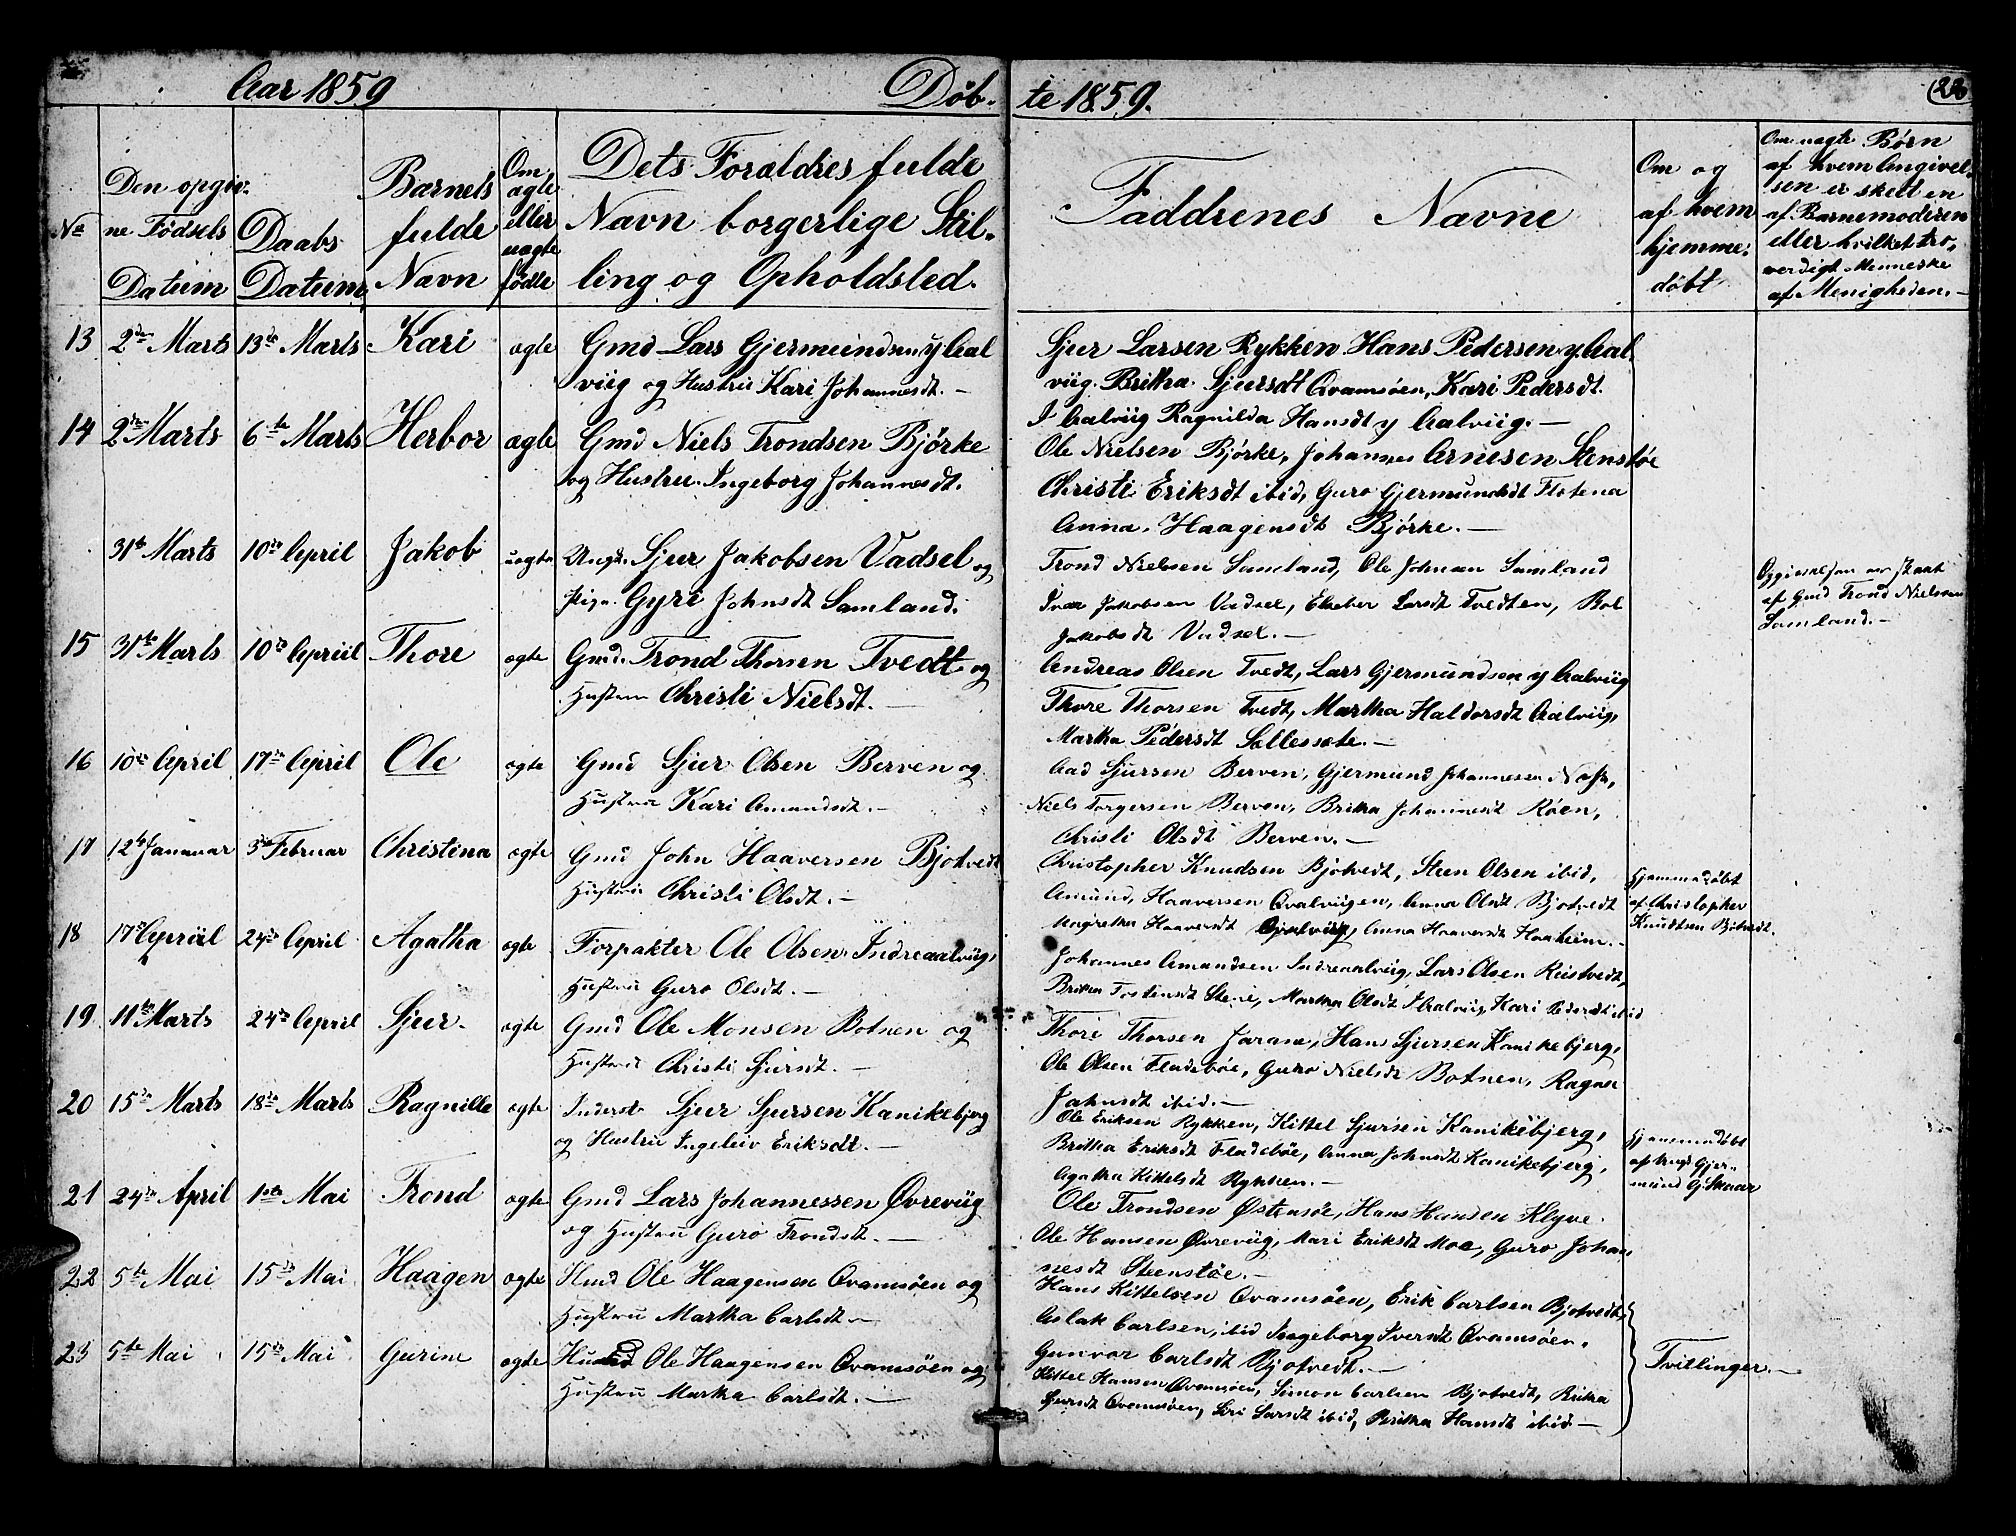 Aar 1859
Døb-
te 1859.
22
No
Den opgiv-
ne Fødsels
Datum
Daabs
Datum
Barnets
fulde
Navn
Om
ægte
eller
uægte
fødte
Dets Forældres fulde
Navn borgerlige Stil-
ling og Opholdsted.
Faddrenes Navne
Om og
af hvem
hjemme-
døbt
Om uægte Børn
af hvem Angivel-
sen er skeet en
af Barnemoderen
eller hvilket tro-
værdigt Menneske
af Menigheden.-
13 2den Marts 13de Marts Kari ægte Gmd Lars Gjermundsen y Aal
viig og Hustru Kari Johannesdt. -
Sjur Larsen Rykken Hans Pedersen y. Aal
viig. Britha Sjursdt Qvamsøen, Kari Pedersdt.
I Aalviig Ragnilda Hansdt y Aalviig. -
14 2den Marts 6te Marts Herbor ægte Gmd Niels Trondsen Bjørke
og Hustru Ingeborg Johannesdt.
Ole Nielsen Bjørke, Johannes Arnesen Stenstøe
Christi Eriksdt ibid, Guro Gjermundsdt Flotena
Anna Haagensdt Bjørke. -
31te Marts 10de April Jakob uægte Ungk. Sjur Jakobsen Vadsel og
Pige Gyri Johnsdt Samland.
Trond Nielsen Samland, Ole Johnsen Samland
Ivar Jakobsen Vadsel, Elseber Larsdt Tvedten, Bol
Jakobsdt Vadsel. -
Opgivelsen er skeet
af Gmd Trond Nielsen
Samland. -
15 31te Marts 10de April Thore ægte Gmd. Trond Thorsen Tvedt og
Hustru Christi Nielsdt. -
Andreas Olsen Tvedt, Lars Gjermundsen y Aalviig
Thore Thorsen Tvedt, Martha Haldorsdt Aalviig,
Martha Pedersdt Sællesæte. -
16 10de April 17de April Ole ægte Gmd Sjur Olsen Berven og
Hustru Kari Amundsdt. -
Aad Sjursen Berven, Gjermund Johannessen
Niels Torgersen Berven, Britha Johannesdt Røen,
Christi Olsdt Berven. -
17 12te Januar 3die Februar Christina ægte Gmd John Haaversen Bjotvedt
Hustru Christi Olsdt. -
Christopher Knudsen Bjotvedt, Steen Olsen ibid,
Amund, Haaversen Qvalviigen, Anna Olsdt Bjotvedt
Magretha Haaversdt, Anna Haaversdt Haaheim. -
Hjemmedøbt
af Christopher
Knudtsen Bjotvedt.
18 17de April 24de April Agatha ægte Forpakter Ole Olsen Indreaalviig,
Hustru Guro Olsdt. -
Johannes Amundsen Indreaalviig, Lars Olsen Reistvedt,
Britha Tostensdt Stene, Martha Olsdt I Aalviig, Kari Pedersdt ibid
19 11te Marts 24de April Sjur ægte Gmd Ole Monsen Botnen og
Hustru Christi Sjursdt. -
Thore Thorsen Jarane, Hans Sjursen Kanikebjerg,
Ole Olsen Fladebøe, Guro Nielsdt Botnen, Ragna
Johnsdt ibid. -
20 15de Marts 18de Marts Ragnilla ægte Inderst Sjur Sjursen Kanikebjerg
og Hustru Ingeleiv Eriksdt. -
Ole Eriksen Rykken, Kittel Sjursen Kanikebjerg,
Britha Eriksdt Fladebøe, Anna Johnsdt Kanikebjerg,
Agatha Kittelsdt Rykken. -
Hjemmedøbt
af Ungk Gjer-
mund G. Skaar
21 24de April 1ste Mai Trond ægte Gmd Lars Johannessen Øvreviig
og Hustru Guro Trondsdt. -
Ole Trondsen Østensøe, Hans Hansen Klyve.
Ole Hansen Øvreviig, Mari Eriksdt Moe, Guro Johan
nesdt Steenstøe. -
22 5te Mai 15de Mai Haagen ægte Hmd Ole Haagensen Qvamsøen og
Hustru Martha Carlsdt -
Hans Kittelsen Qvamsøen, Erik Carlsen Bjotvedt,
Aslak Carlsen, ibid Ingeborg Iversdt Qvamsøen.
Gunvor Carlsdt Bjotvedt. -
23 5te Mai 15de Mai Gurine ægte Husmd Ole Haagensen Qvamsøen og
Hustru Martha Carlsdt. -
Kittel Hansen Qvamsøen, Simon Carlsen Bjotvedt, Britha
Sjursdt Qvamsøen, Siri Larsdt ibid, Britha Hansdt ibid -
Tvillinger. -